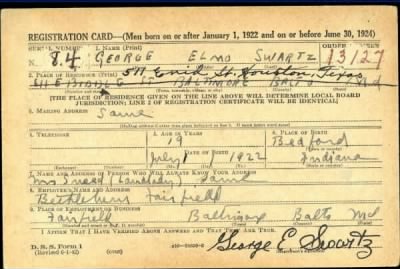 REGISTRATION CARD—(Men born on or after January 1, 1922 and on or before June 30, 1924)
SERIAL NUMBER 1. NAME (Print)
N. 84 GEORGE ELMO SWARTZ 13127
2. PLACE OF RESIDENCE (Print) 511 Enid St. Houston, Texas
BALTIMORE BALTO Md
[THE PLACE OF RESIDENCE GIVEN ON THE LINE ABOVE WILL DETERMINE LOCAL BOARD
JURISDICTION; LINE 2 OF REGISTRATION CERTIFICATE WILL BE IDENTICAL]
3. MAILING ADDRESS
Same
4. TELEPHONE 5. AGE IN YEARS 6. PLACE OF BIRTH
19 Bedford
July 1 1922 Indiana
7. NAME AND ADDRESS OF PERSON WHO WILL ALWAYS KNOW YOUR ADDRESS
Mrs (Landlady) Same
8. EMPLOYER'S NAME AND ADDRESS
Bethlehem Fairfield
9. PLACE OF EMPLOYMENT OR BUSINESS
Fairfield Baltimore Balto Md
I AFFIRM THAT I HAVE VERIFIED ABOVE ANSWERS AND THAT THEY ARE TRUE.
D. S. S. Form 1
(Revised 6-1-42) (over)
George E Swartz